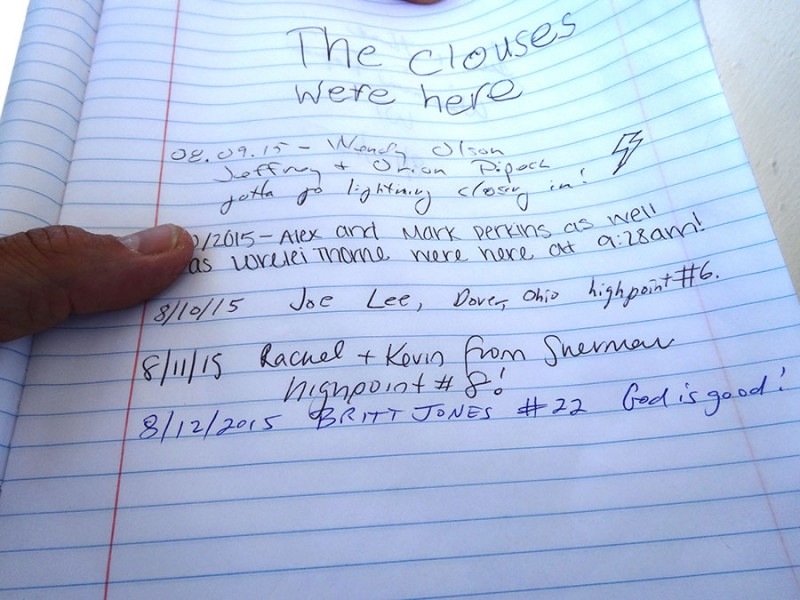 The Clouses
were here
08.09.15 - Wendy Olson
Jeffrey + Orion
gotta go lightning closing in!
0/2015 - Alex and Mark Perkins as well
as Lorelei Thorne were here at 9:28am!
8/10/15 Joe Lee, Dover, Ohio highpoint #6.
8/11/15 Rachel + Kevin from Sherman
highpoint # 8!
8/12/2015 BRITT JONES #22 God is good!